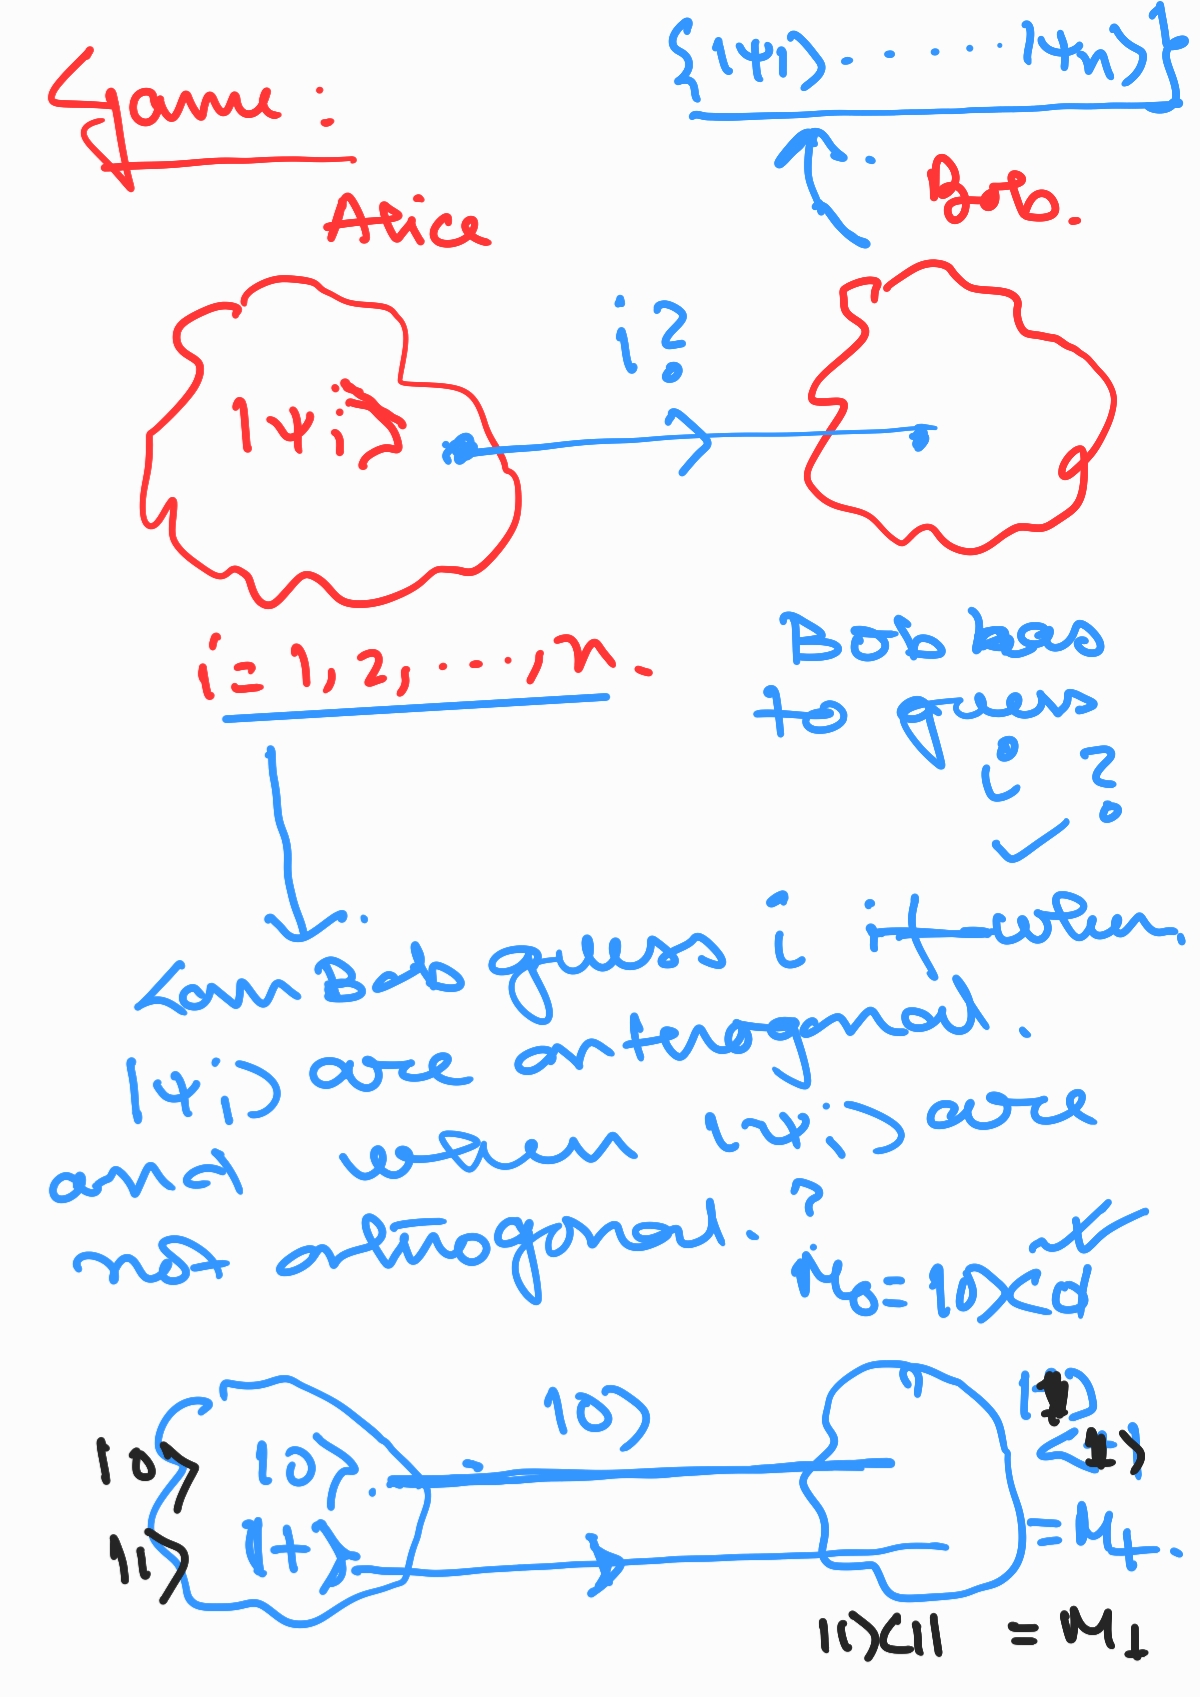 {|ψ1⟩ . . . . . |ψn⟩}
Game :
Alice
Bob.
i?
|ψi⟩
i = 1, 2, ...., n.
Bob has
to guess
i ?
Can Bob guess i if when.
|ψi⟩ are orthogonal.
and when |ψi⟩ are
not othogonal. ?
M0 = |0⟩⟨0|
|0⟩
|0⟩ |0⟩.
|1⟩ |+⟩
= M+.
|1⟩⟨1| = M1